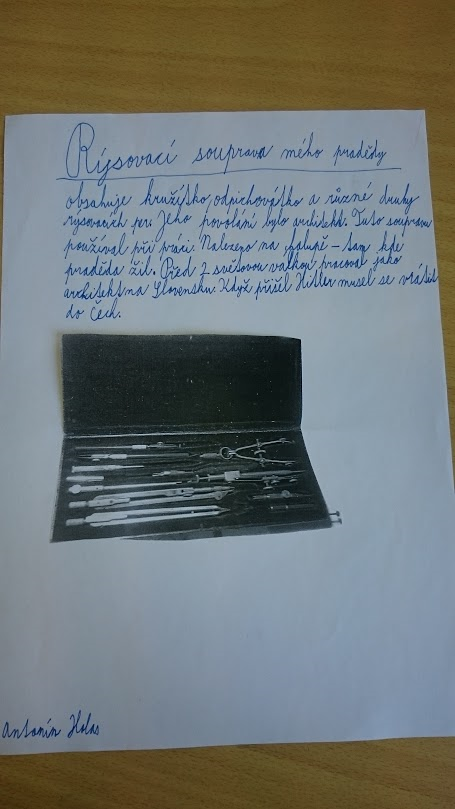 Rýsovací souprava mého pradědy
obsahuje kružítko, odpichovátko a různé druhy
rýsovacích per. Jeho povolání bylo architekt. Tuto soupravu
používal při práci. Nalezeno na chalupě - tam kde
praděda žil. Před 2 světovou válkou pracoval jako
architekt na Slovensku. Když přišel Hitler musel se vrátit
do Čech.
Antonín Holas